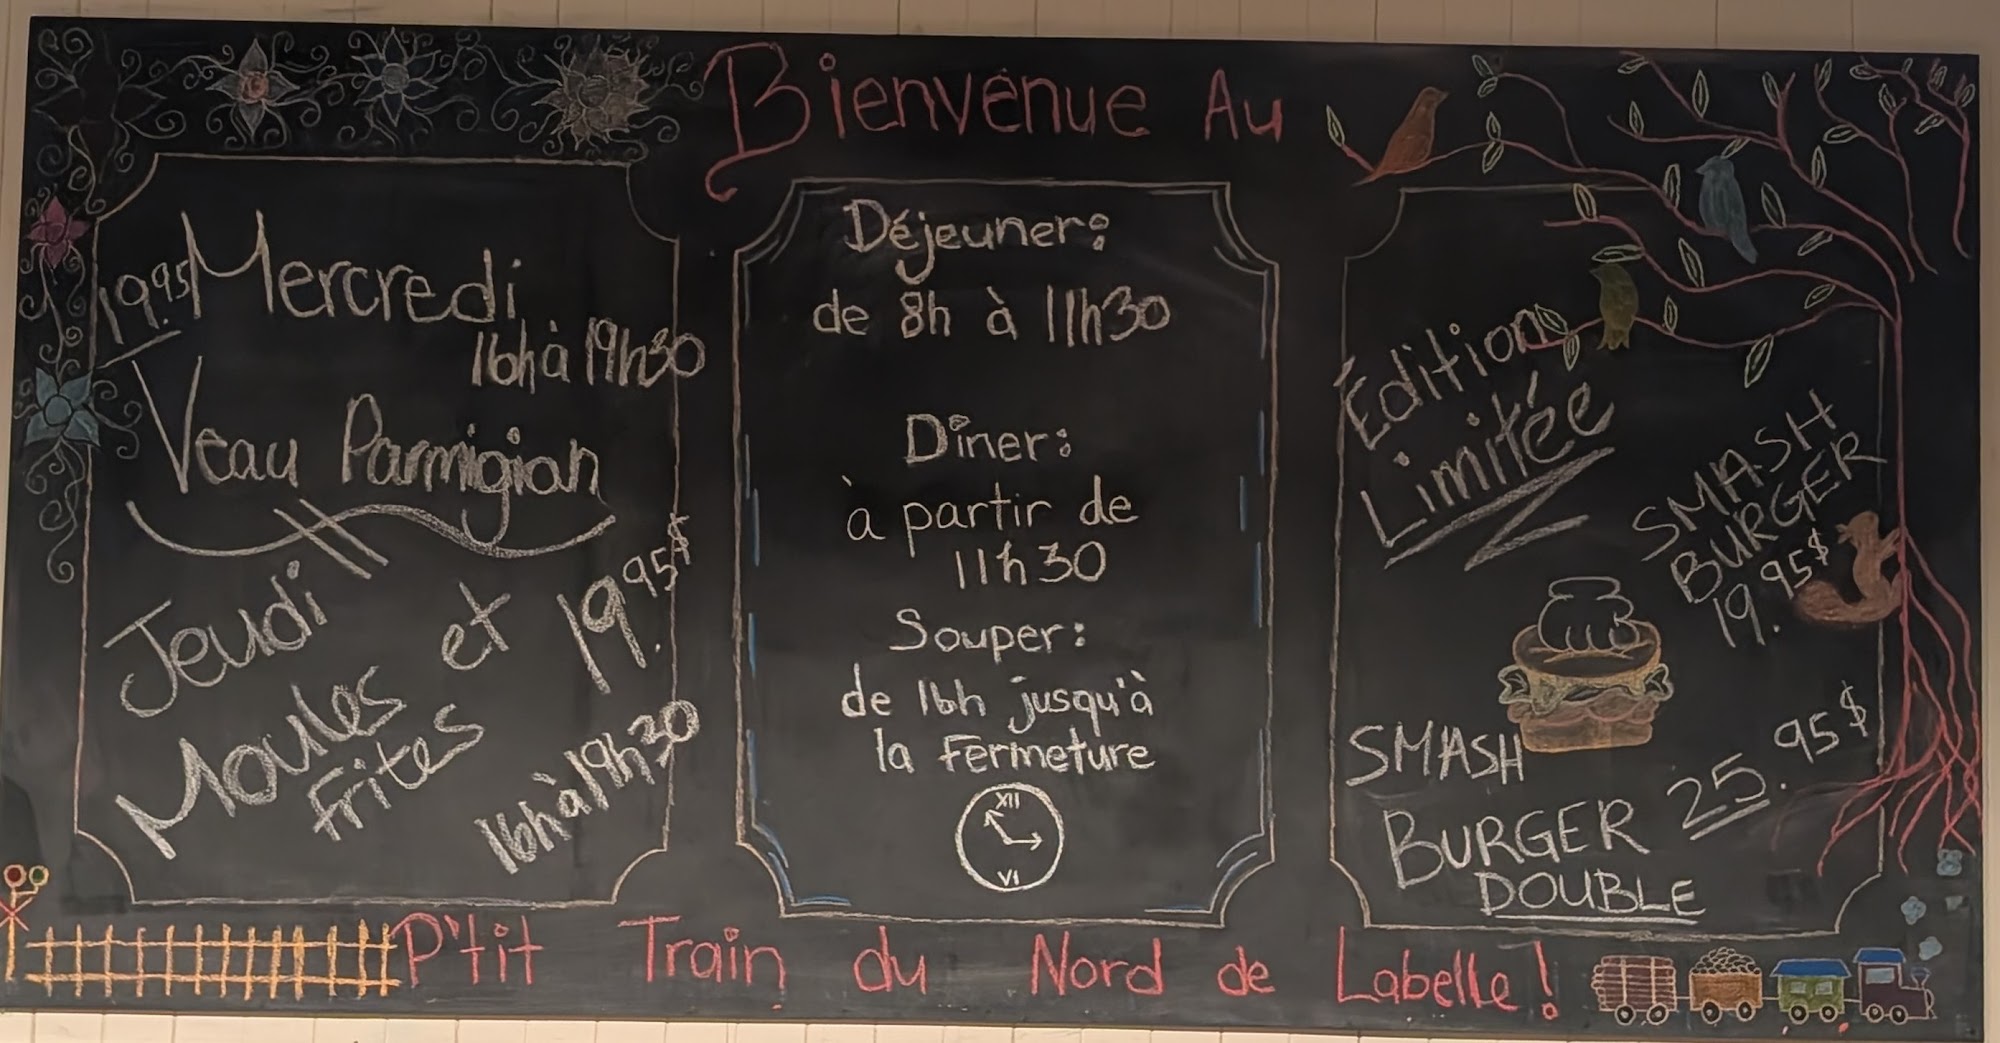 Bienvenue Au
19.95 Mercredi
16h à 19h30
Veau Parmigian
Jeudi
Moules et
frites
19.95$
16h à 19h30
Déjeuner:
de 8h à 11h30
Dîner:
à partir de
11h30
Souper:
de 16h jusqu'à
la Fermeture
XII
VI
Édition
Limitée
SMASH
BURGER
19.95$
SMASH
BURGER 25.95$
DOUBLE
P'tit Train du Nord de Labelle!